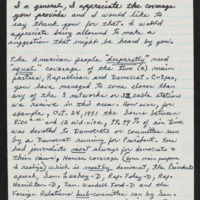 In general, I appreciate the coverage
you provide and I would like to
say thank you for that. I would
appreciate being allowed to make a
suggestion that might be heard by you.
The American people "desperately need
equal" coverage of the two (2) main
parties, Republican and Democrat. C-Span,
you have managed to come closer than
any of the 3 networks or 32 cable stations
we receive in this area. However, for
example, Oct. 24, 1991 the house between
9:00 a.m. & 12 mid-nite, 99.99% of air time
was devoted to Democrats or committee run
by a Democrat running for President. You
had portrayed most always for democrats &
their views; House coverage (run
a meeting) which is mostly democrat, the Presidents
speech, Sen. Leahey-D, Rep. Foley-D, Rep.
Hamilton-D, Sen. Wendell Ford-D and the
Foreign Relations sub-committee ran by Sen.